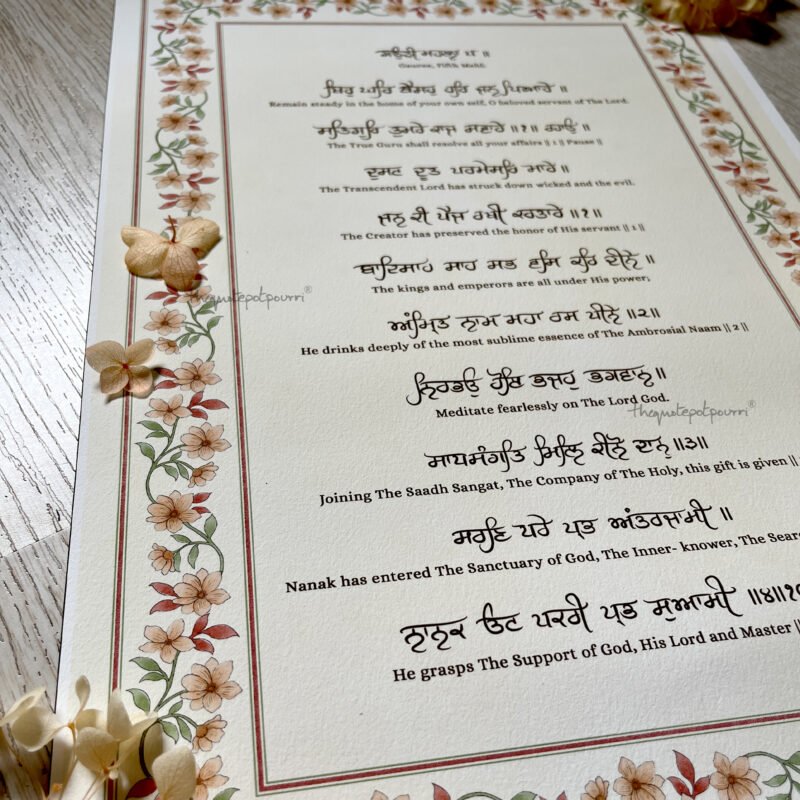 ਗਉੜੀ ਮਹਲਾ ੫ ॥
Gauree, Fifth Mehl:
ਥਿਰੁ ਘਰਿ ਬੈਸਹੁ ਹਰਿ ਜਨ ਪਿਆਰੇ ॥
Remain steady in the home of your own self, O beloved servant of The Lord.
ਸਤਿਗੁਰਿ ਤੁਮਰੇ ਕਾਜ ਸਵਾਰੇ ॥੧॥ ਰਹਾਉ ॥
The True Guru shall resolve all your affairs || 1 || Pause ||
ਦੁਸਟ ਦੂਤ ਪਰਮੇਸਰਿ ਮਾਰੇ ॥
The Transcendent Lord has struck down wicked and the evil.
ਜਨ ਕੀ ਪੈਜ ਰਖੀ ਕਰਤਾਰੇ ॥੧॥
The Creator has preserved the honor of His servant || 1 ||
ਬਾਦਿਸਾਹ ਸਾਹ ਸਭ ਵਸਿ ਕਰਿ ਦੀਨੇ ॥
The kings and emperors are all under His power;
ਅੰਮ੍ਰਿਤ ਨਾਮ ਮਹਾ ਰਸ ਪੀਨੇ ॥੨॥
He drinks deeply of the most sublime essence of The Ambrosial Naam || 2 ||
ਨਿਰਭਉ ਹੋਇ ਭਜਹੁ ਭਗਵਾਨ ॥
Meditate fearlessly on The Lord God.
ਸਾਧਸੰਗਤਿ ਮਿਲਿ ਕੀਨੋ ਦਾਨੁ ॥੩॥
Joining The Saadh Sangat, The Company of The Holy, this gift is given ||
ਸਰਣਿ ਪਰੇ ਪ੍ਰਭ ਅੰਤਰਜਾਮੀ ॥
Nanak has entered The Sanctuary of God, The Inner- knower, The
ਨਾਨਕ ਓਟ ਪਕਰੀ ਪ੍ਰਭ ਸੁਆਮੀ ॥੪॥
He grasps The Support of God, His Lord and Master ||
thequotepotpourri®
thequotepotpourri®